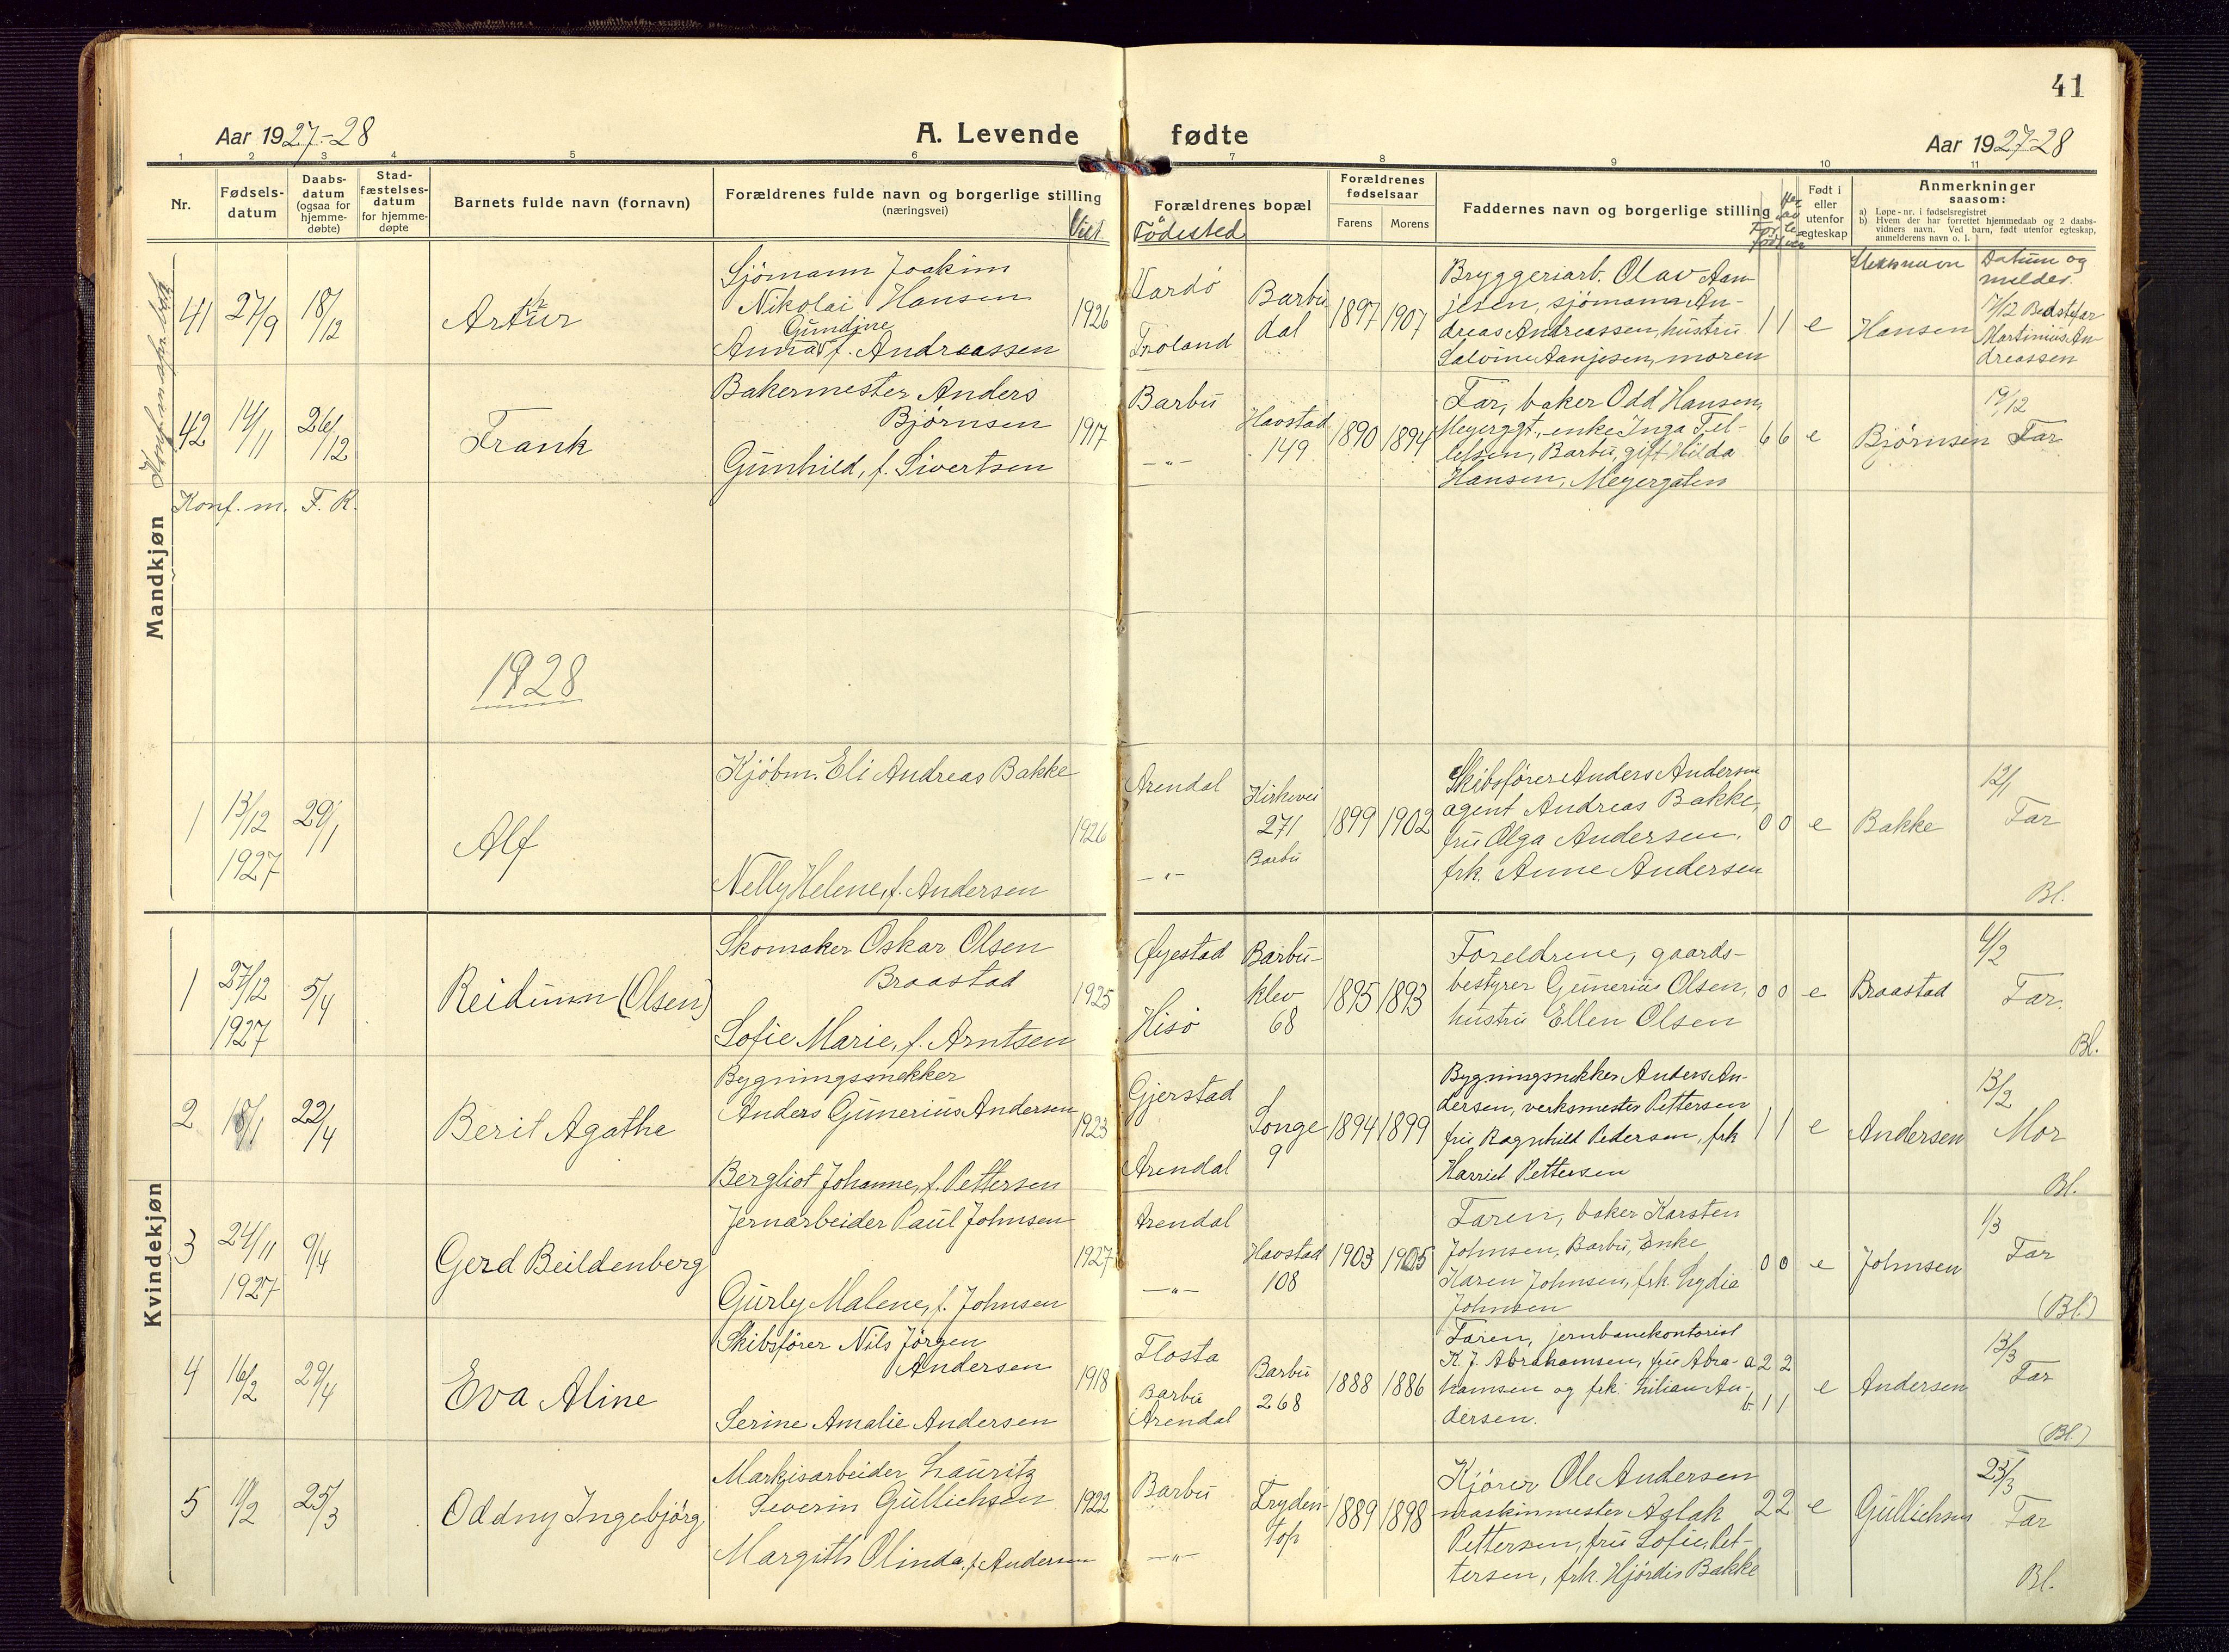 41
Aar 1927-28
A. Levende fødte
Aar 1927-28
1 2 3 4 5 6 7 8 9 10 11
Nr.
Fødsels-
datum
Daabs-
datum
(ogsaa for
hjemme-
døbte)
Stad-
fæstelses-
datum
for hjemme-
døpte
Barnets fulde navn (fornavn)
Forældrenes fulde navn og borgerlige stilling
(næringsvei)
Viet
Forældrenes bopæl
Födested
Forældrenes
fødselsaar
Farens
Morens
Faddernes navn og borgerlige stilling
Født i
eller
utenfor
egteskap
Anmerkninger
saasom:
a) Løpe-nr. i fødselsregistret
b) Hvem der har forrettet hjemmedaab og 2 daabs-
vidners navn. Ved barn, født utenfor egteskap,
anmelderens navn o. l.
Datum og
melder
Mandkjøn
41
27/9
18/12
Artur
h
Sjömann Joakim
Nikolai Hansen
Gundine
Anna f. Andreassen
1926
Vardö
Froland
Barbu
dal
1897
1907
Bryggeriarb. Olav Aan
jesen, sjömann An-
dreas Andreassen, hustru
Salvine Aanjesen, moren
1 1
e
Hansen
17/12 Bedstefar
Martinius An
dreassen
42
14/11
26/12
Frank
Bakermester Anders
Bjørnsen
Gunhild, f. Sivertsen
1917
Barbu
-"-
Havstad
149
1890
1894
Far, baker Odd Hansen,
Meyergt., enke Inga Tel-
lefsen, Barbu, gift Hilda
Hansen, Meyergaten
6 6
e
Bjørnsen
19/12
Far
Konf. m. F. R.
1928
1
13/12
1927
29/1
Alf
Kjöbm. Eli Andreas Bakke
Nelly Helene, f. Andersen
1926
Arendal
-"-
Kirkevei
271
Barbu
1899
1902
Skibsfører Anders Andersen
agent Andreas Bakke,
fru Olga Andersen,
frk. Anne Andersen
0 0
e
Bakke
12/1
Far
Bl.
Kvindekjøn
1
27/12
1927
5/4
Reidunn (Olsen)
Skomaker Oskar Olsen
Braastad
Sofie Marie, f. Arntsen
1925
Øyestad
Hisö
Barbu-
klev
68
1895
1893
Foreldrene, gaards-
bestyrer Gunerius Olsen,
hustru Ellen Olsen
0 0
e
Braastad
4/2
Far.
Bl.
2
22/4
Berit Agathe
Bygningssnekker
Anders Gunerius Andersen
Bergliot Johanne, f. Pettersen
1923
Gjerstad
Arendal
Songe
9
1894
1899
Bygningsnekker Anders An-
dersen, verksmester Pettersen
fru Ragnhild Pedersen, frk
Harriet Pettersen
1 1
e
Andersen
13/2
Mor
Bl.
3
24/11
1927
9/4
Gerd Beildenberg
Jernarbeider Paul Johnsen
Gurly Malene, f. Johnsen
1927
Arendal
-"-
Havstad
108
1903
1905
Faren, baker Karsten
Johnsen, Barbu, Enke
Karen Johnsen, frk. Lydia
Johnsen
0 0
e
Johnsen
1/3
Far
(Bl.)
4
16/2
29/4
Eva Aline
Skibsfører Nils Jörgen
Andersen
Serine Amalie Andersen
1918
Flosta
Barbu
Arendal
Barbu
268
1888
1886
Faren, jernbanekontorist
K. J. Abrahamsen, fru Abra-
hamsen og frk. Lilian An-
dersen.
a 2 2
b 1 1
e
Andersen
13/3
Far
(Bl.)
5
11/2
25/3
Oddny Ingebjörg
Markisarbeider Lauritz
Severin Gullichsen
Margith Olinda, f. Andersen
1922
Barbu
-"-
Fryden
top
1889
1898
Kjörer Ole Andersen
maskinmester Aslak
Pettersen, fru Sofie Pet-
tersen, frk. Hjördis Bakke
2 2
e
Gullichsen
23/3
Far
Bl.